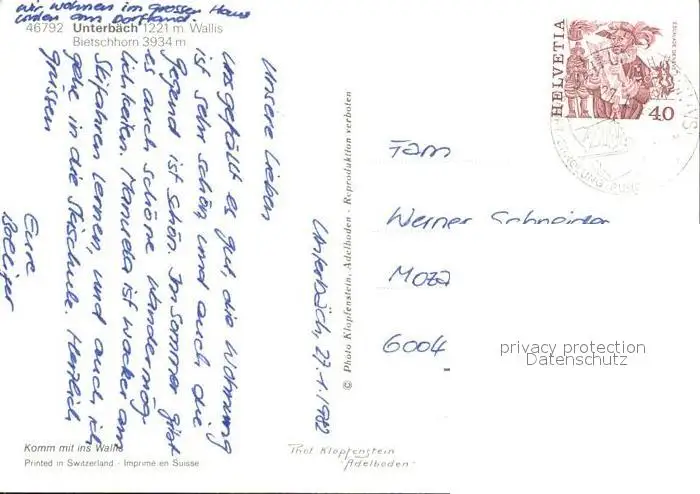 wir wohnen im grossen Haus
unten am Dorfrand.
46792 Unterbäch 1221 m. Wallis
Bietschhorn 3934 m
Unterbäch, 27.1.1982
Unsere Lieben
Uns gefällt es gut, die Wohnung
ist sehr schön, und auch die
Gegend ist schön. Im Sommer gibt
es auch schöne Wandermög-
lichkeiten. Manuela ist wacker am
Skifahren lernen, und auch ich
gehe in die Skischule. Herzlich
grüssen
Eure
Bolliger
Komm mit ins Wallis
Printed in Switzerland - Imprimé en Suisse
© Photo Klopfenstein, Adelboden - Reproduktion verboten
Phot Klopfenstein
"Adelboden"
HELVETIA
ESCALADE GENÈVE
40
27.
Fam
Werner Schneider
Moza
6004
privacy protection
Datenschutz